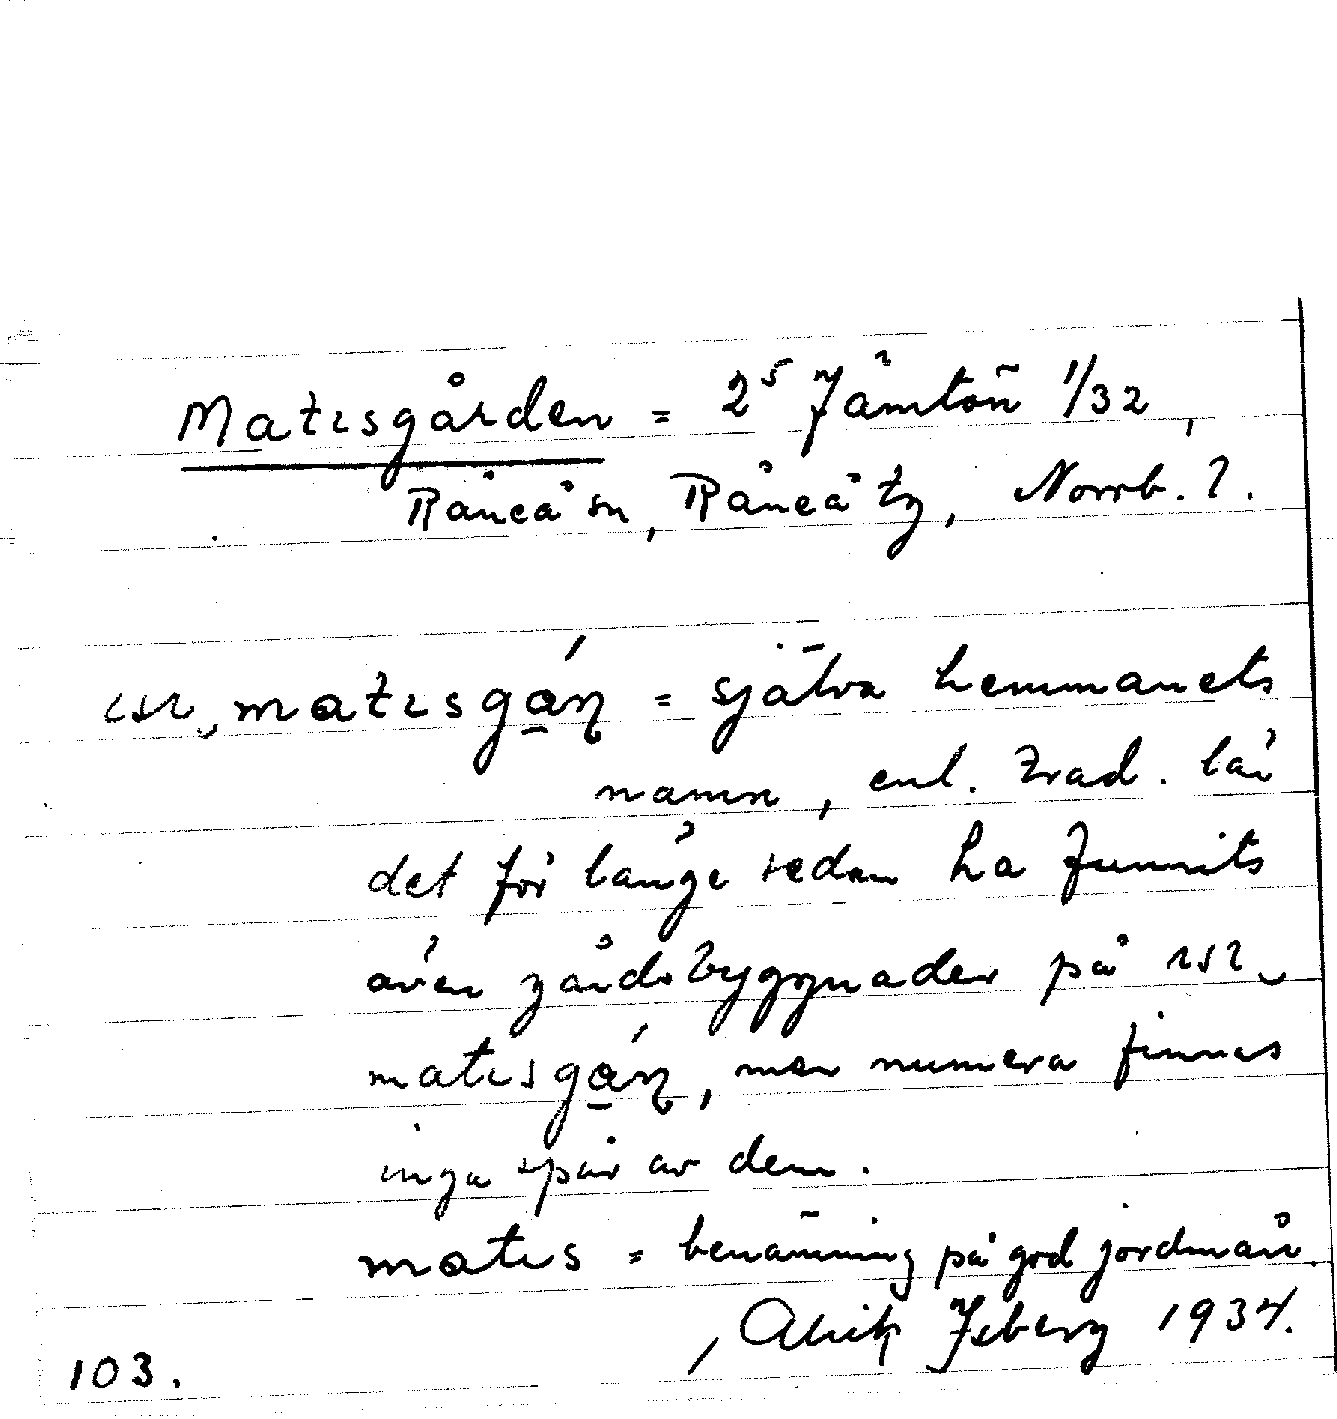 Matisgården = 2⁵ Jämtön 1/32,
Råneå sn, Råneå tg, Norrb. l.
matisgɑ́ɳ = själva hemmanets
namn, enl. trad. lär
det för länge sedan ha funnits
även gårdsbyggnader på
matisgɑ́ɳ, men numera finnes
inga spår av dem.
matis = benämning på god jordmån.
Alrik Isberg 1934.
103.